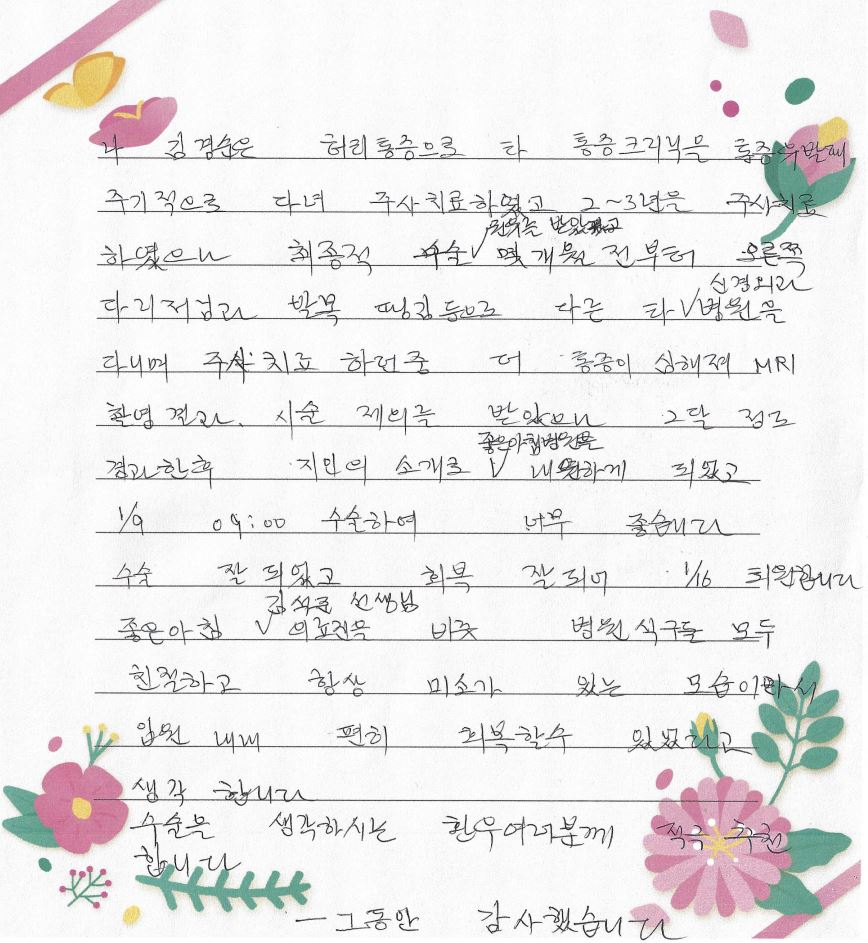 나 김경순은 허리통증으로 타 통증크리닉을 통증유발때
주기적으로 다녀 주사치료하였고 2~3년을 주사치료
권유를 받았었고
하였으나 최종적 수술 ✓ 몇개월 전부터 오른쪽
신경외과
다리저림과 발목 땡김등으로 다른 타 ✓ 병원을
다니며 주사치료 하던중 더 통증이 심해져 MRI
촬영 결과. 시술 제의를 받았으나 그달 정도
좋은아침병원을
경과한후 지인의 소개로 ✓ 내원하게 되었고
1/9 09:00 수술하여 너무 좋습니다
수술 잘 되었고 회복 잘되어 1/16 퇴원합니다
김석준 선생님
좋은아침 ✓ 의료진을 비롯 병원식구들 모두
친절하고 항상 미소가 있는 모습이라서
입원 내내 편히 회복할수 있었다고
생각 합니다
수술을 생각하시는 환우여러분께 적극 추천
합니다
- 그동안 감사했습니다